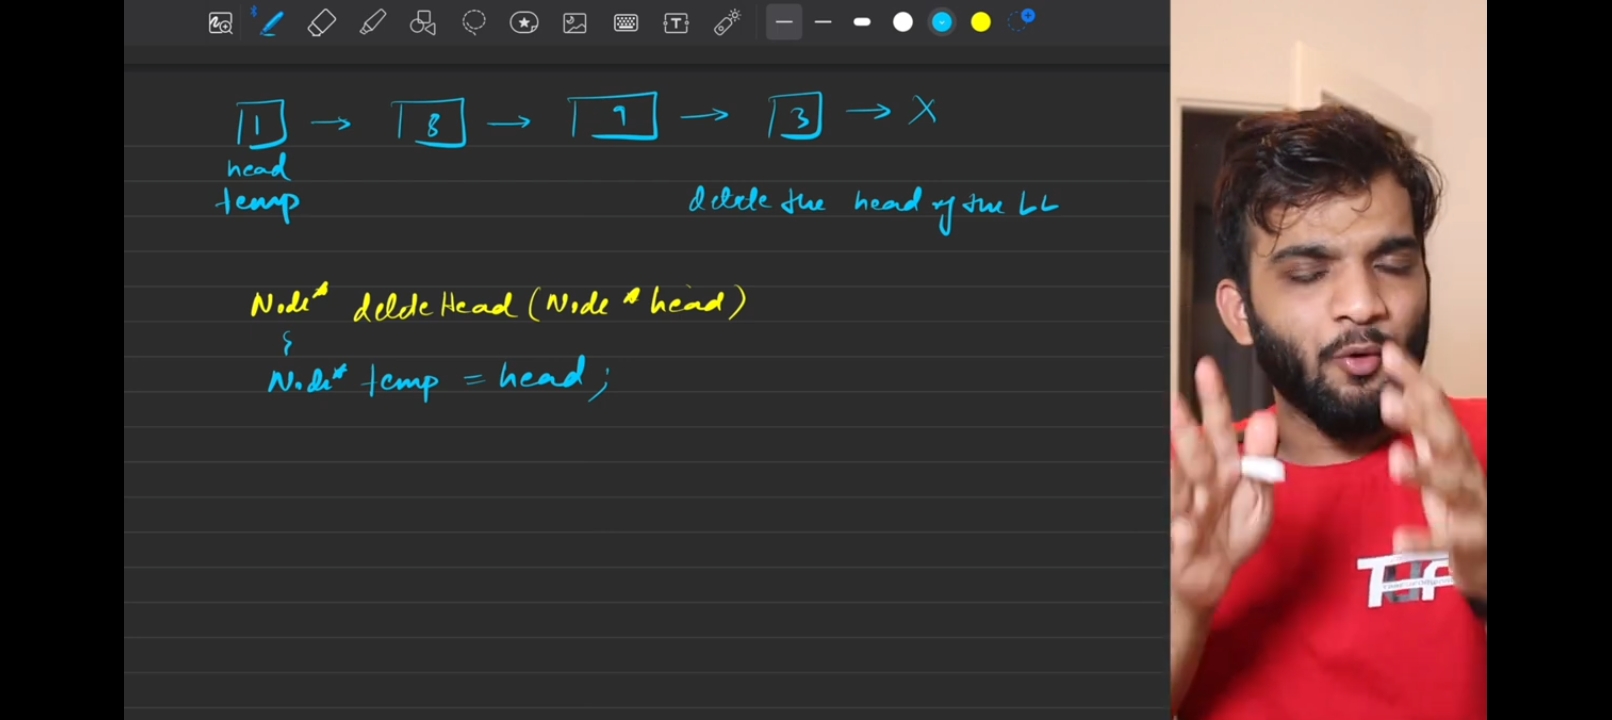 1 → 8 → 9 → 3 → X
head
temp
delete the head of the LL
Node* deleteHead (Node * head)
{
Node* temp = head;
TUF